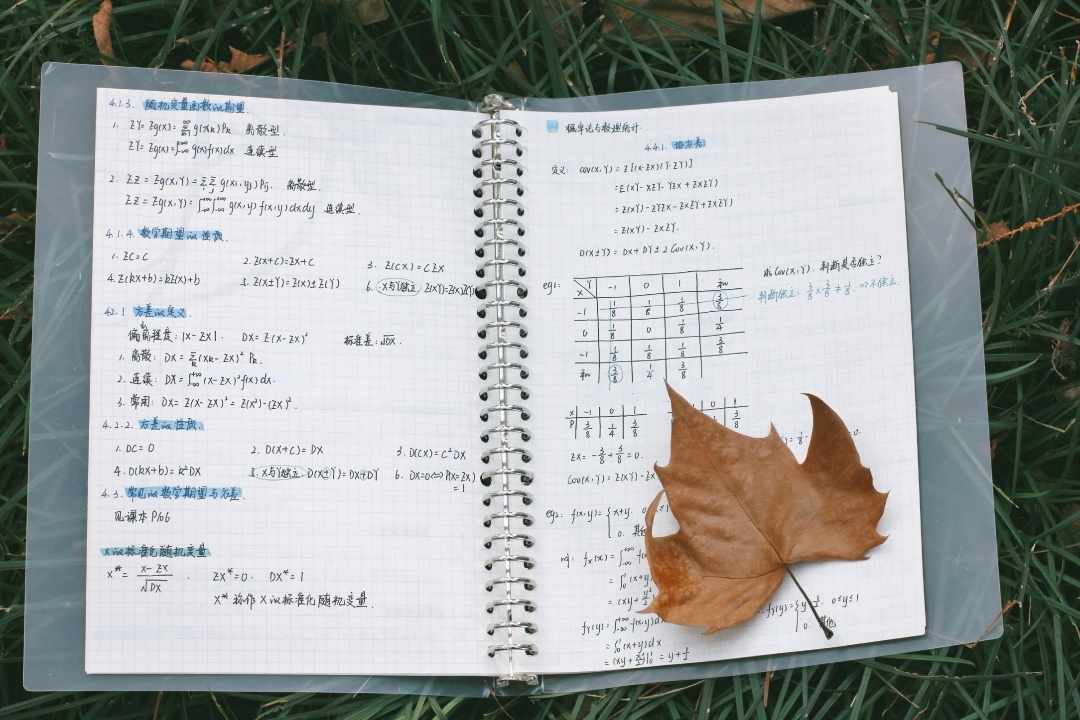 4.1.3. 随机变量函数的期望.
1. EY = Eg(x) = ∑_{k=1}^{∞} g(xk) Pk 离散型.
EY = Eg(x) = ∫_{-∞}^{+∞} g(x)f(x)dx 连续型
2. EZ = Eg(X,Y) = ∑_i ∑_j g(xi, yj) Pij. 离散型.
EZ = Eg(X,Y) = ∫_{-∞}^{+∞}∫_{-∞}^{+∞} g(x,y) f(x,y) dxdy 连续型.
4.1.4. 数学期望的性质.
1. EC = C 2. E(X+C) = EX+C 3. E(CX) = CEX
4. E(kX+b) = kE(X)+b 5. E(X±Y) = E(X)±E(Y) 6. X与Y独立 E(XY)=E(X)E(Y)
4.2.1 方差的定义.
偏离程度: |X-EX|. DX = E(X-EX)² 标准差: √DX.
1. 离散: DX = ∑_k (Xk-EX)² Pk.
2. 连续: DX = ∫_{-∞}^{+∞} (X-EX)² f(x) dx.
3. 常用: DX = E(X-EX)² = E(X²)-(EX)².
4.2.2. 方差的性质.
1. DC = 0 2. D(X+C) = DX 3. D(CX) = C²DX
4. D(kX+b) = k²DX 5. X与Y独立. D(X±Y) = DX+DY 6. DX=0⟺P(X=EX)
= 1
4.3. 常见的数学期望与方差.
见课本 P106
X的标准化随机变量
X* = (X-EX)/√DX. EX* = 0. DX* = 1
X* 称作 X的标准化随机变量.
概率论与数理统计.
4.4.1. 协方差
定义: cov(X,Y) = E[(X-EX)(Y-EY)]
= E(XY - XEY - YEX + EXEY)
= E(XY) - EYEX - EXEY + EXEY)
= E(XY) - EXEY.
D(X±Y) = DX + DY ± 2Cov(X,Y).
eg1: X Y -1 0 1 和
-1 1/8 1/8 1/8 3/8
0 1/8 0 1/8 1/4
-1 1/8 1/8 1/8 3/8
和 3/8 1/4 3/8
求Cov(X,Y). 判断是否独立?
判断独立: 3/8 × 3/8 ≠ 1/8. ⇒不独立.
X -1 0 1 0 1
P 3/8 1/4 3/8 3/8
EX = -3/8 + 3/8 = 0.
Cov(X,Y) = E(XY) - EX
eg2: f(x,y) = { x+y. 0
0. 其他
fx(x) = ∫_{-∞}^{+∞} f(x
= ∫_0^1 (x+y
= (xy + y²/2
fY(y) = ∫_{-∞}^{+∞} f(x,y)dx
= ∫_0^1 (x+y)dx
= (xy + x²/2)|_0^1 = y + 1/2
∴ fY(y) = { y 1/2. 0≤y≤1
0. 其他